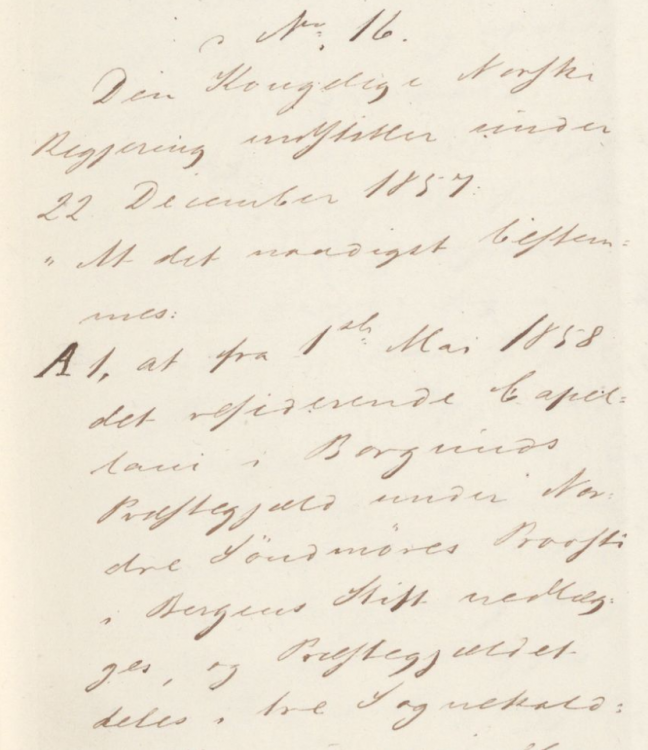 No. 16.
Den Kongelige Norske
Regjering indstiller under
22 December 1857:
"At det naadigst bestem-
mes:
A 1, at fra 1ste Mai 1858
det residerende Capel-
lani i Borgunds
Præstegjæld under Nor-
dre Söndmöres Provsti
i Bergens Stift nedlæg-
ges, og Præstegjældet
deles i tre Sognekald: